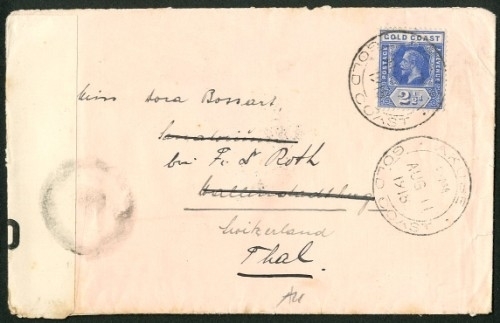 GOLD COAST
POSTAGE REVENUE
2½d
GOLD COAST
AKUSE
AUG 11
1915
GOLD COAST
Miss Dora Bossart,
Sanatorium
bei Fr. Dr Roth
Wallenstadtberg
Switzerland
Thal.